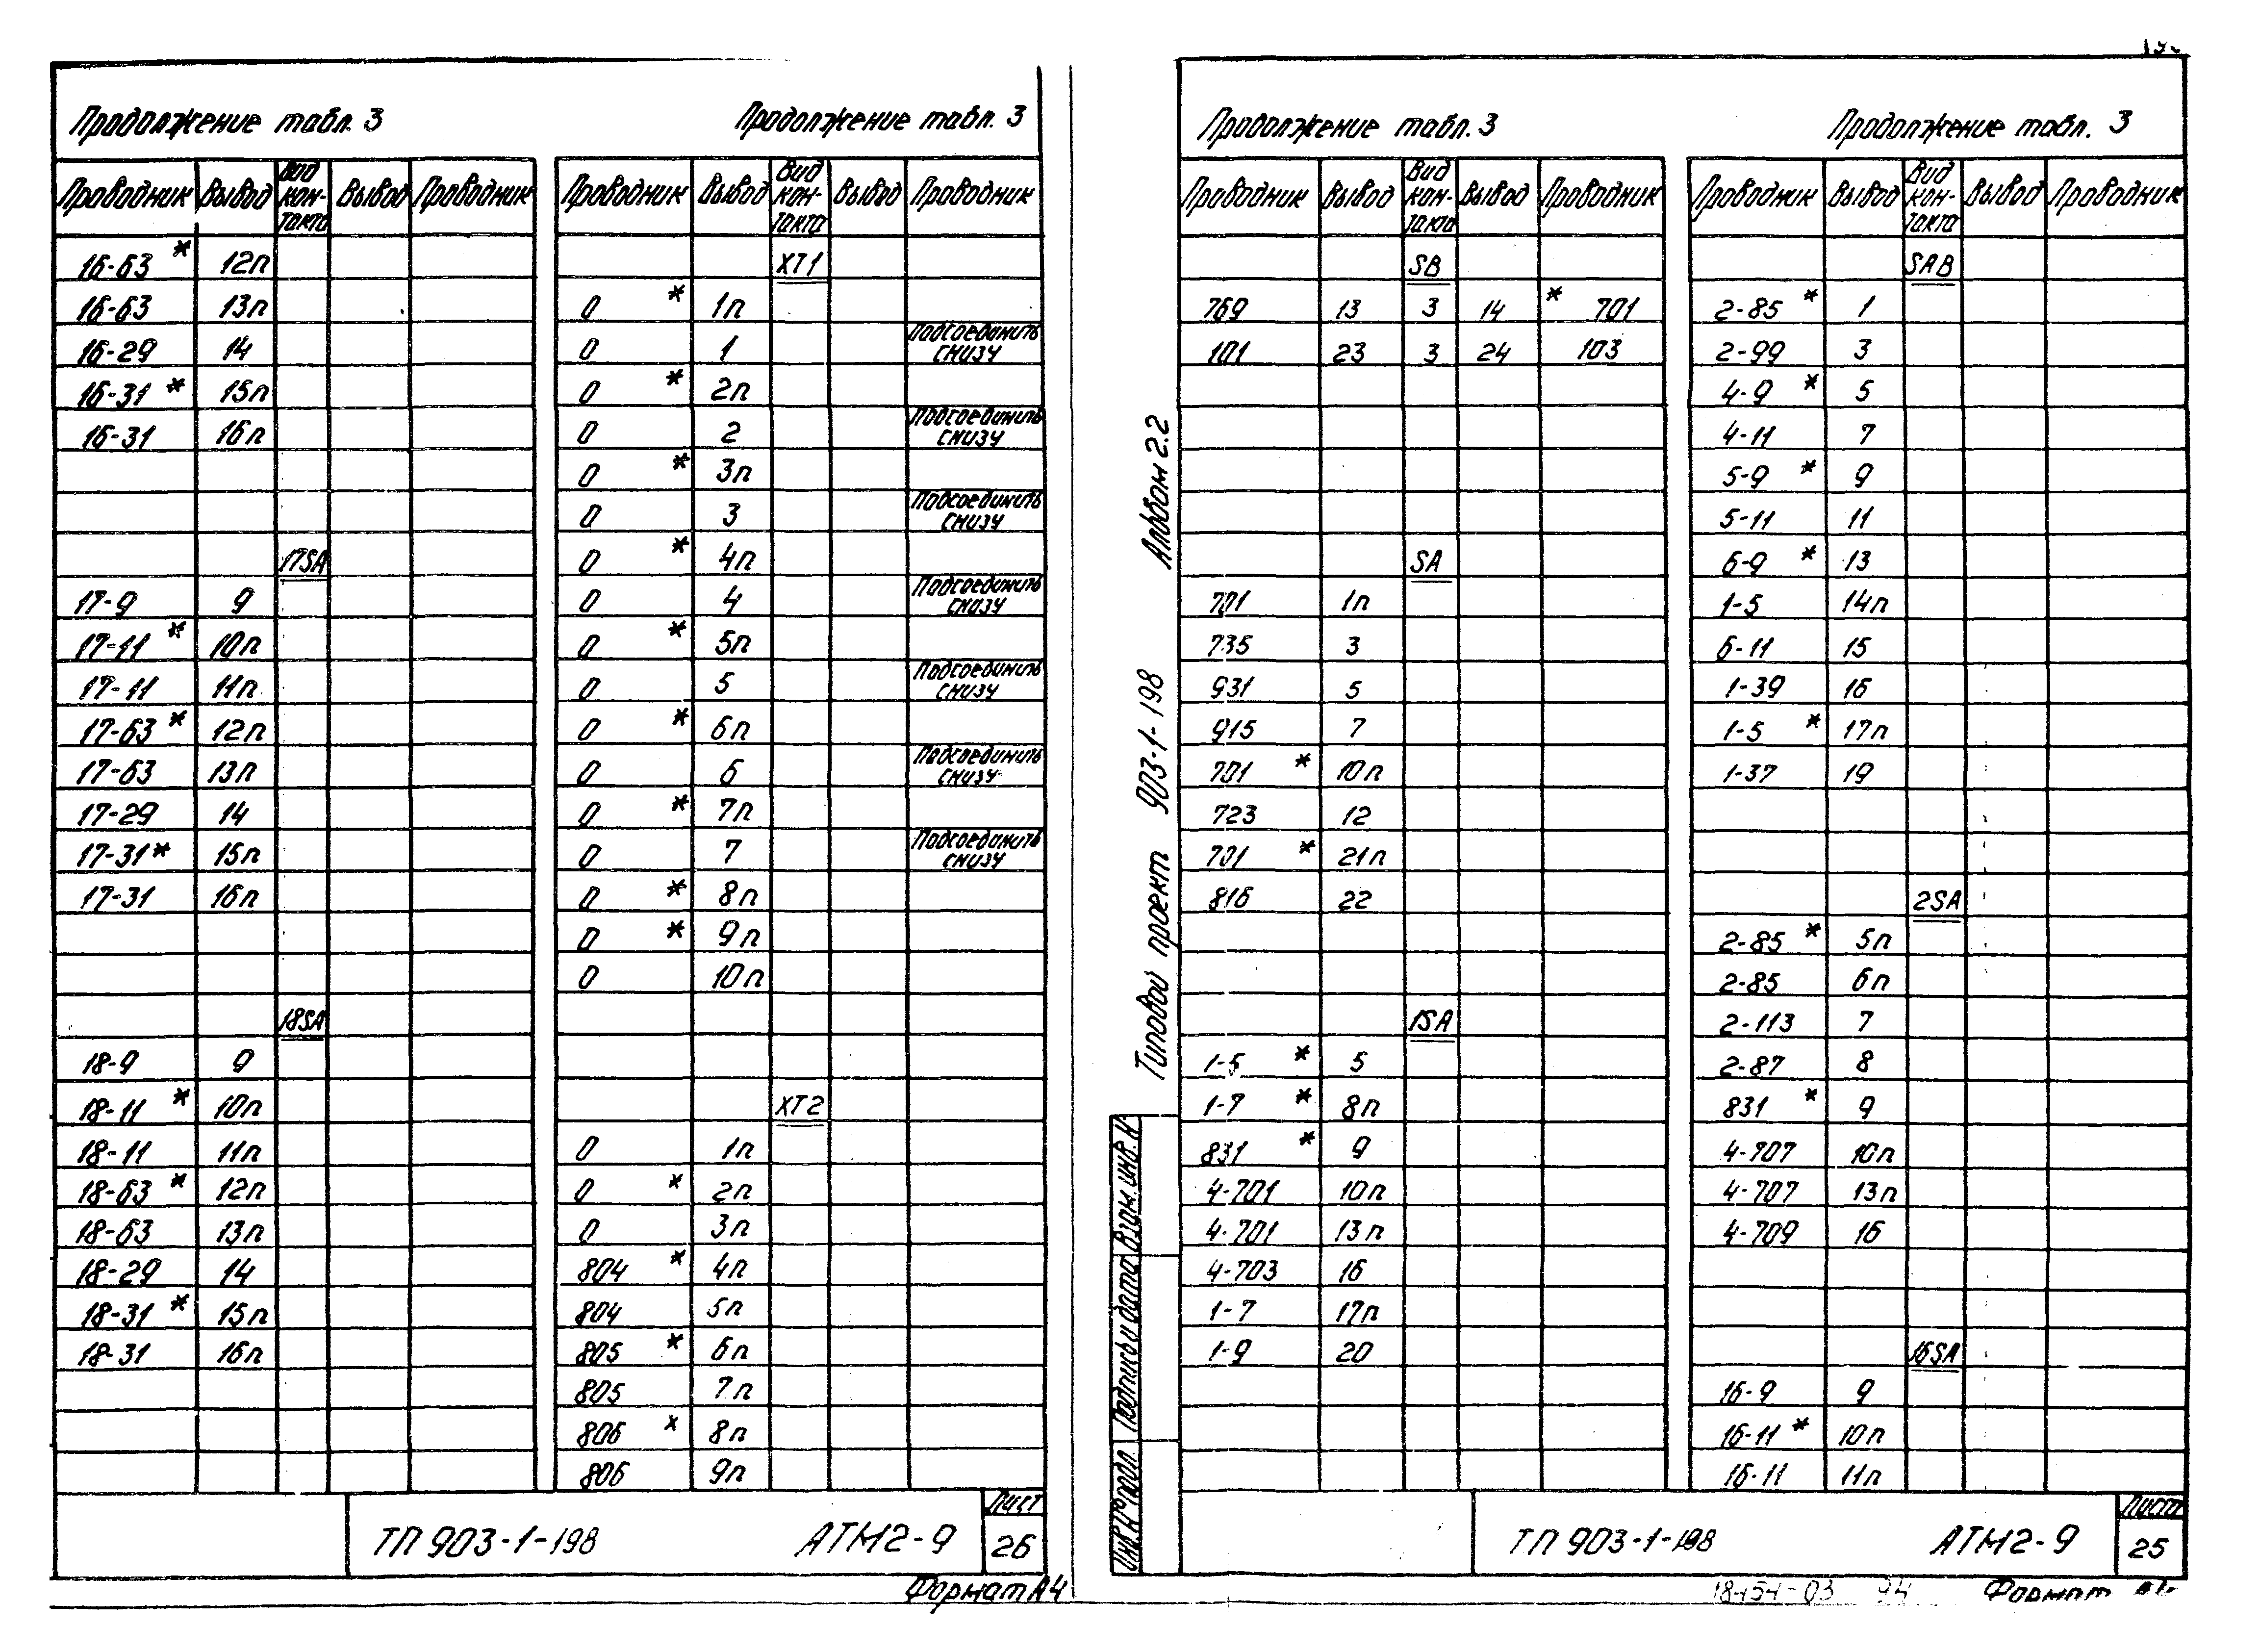 Продолжение табл. 3
Проводник Вывод Вид контакта Вывод Проводник
16-63 * 12п
16-63 13п
16-29 14
16-31 * 15п
16-31 16п
17SA
17-9 9
17-11 * 10п
17-11 11п
17-63 * 12п
17-63 13п
17-29 14
17-31 * 15п
17-31 16п
18SA
18-9 9
18-11 * 10п
18-11 11п
18-63 * 12п
18-63 13п
18-29 14
18-31 * 15п
18-31 16п
Продолжение табл. 3
Проводник Вывод Вид контакта Вывод Проводник
XT1
0 * 1п
0 1 Подсоединить снизу
0 * 2п
0 2 Подсоединить снизу
0 * 3п
0 3 Подсоединить снизу
0 * 4п
0 4 Подсоединить снизу
0 * 5п
0 5 Подсоединить снизу
0 * 6п
0 6 Подсоединить снизу
0 * 7п
0 7 Подсоединить снизу
0 * 8п
0 * 9п
0 10п
XT2
0 1п
0 * 2п
0 3п
804 * 4п
804 5п
805 * 6п
805 7п
806 * 8п
806 9п
ТП 903-1-198 АТМ2-9 Лист 26
Формат А4
Продолжение табл. 3
Проводник Вывод Вид контакта Вывод Проводник
SB
769 13 3 14 * 701
101 23 3 24 103
SA
701 1п
735 3
931 5
915 7
701 * 10п
723 12
701 * 21п
816 22
1SA
1-5 * 5
1-7 * 8п
831 * 9
4-701 10п
4-701 13п
4-703 16
1-7 17п
1-9 20
Продолжение табл. 3
Проводник Вывод Вид контакта Вывод Проводник
SAB
2-85 * 1
2-99 3
4-9 * 5
4-11 7
5-9 * 9
5-11 11
6-9 * 13
1-5 14п
6-11 15
1-39 16
1-5 * 17п
1-37 19
2SA
2-85 * 5п
2-85 6п
2-113 7
2-87 8
831 * 9
4-707 10п
4-707 13п
4-709 16
16SA
16-9 9
16-11 * 10п
16-11 11п
ТП 903-1-198 АТМ2-9 Лист 25
Формат
Типовой проект 903-1-198 Альбом 2.2
Инв. № подл. Подпись и дата Взам. инв. №
94